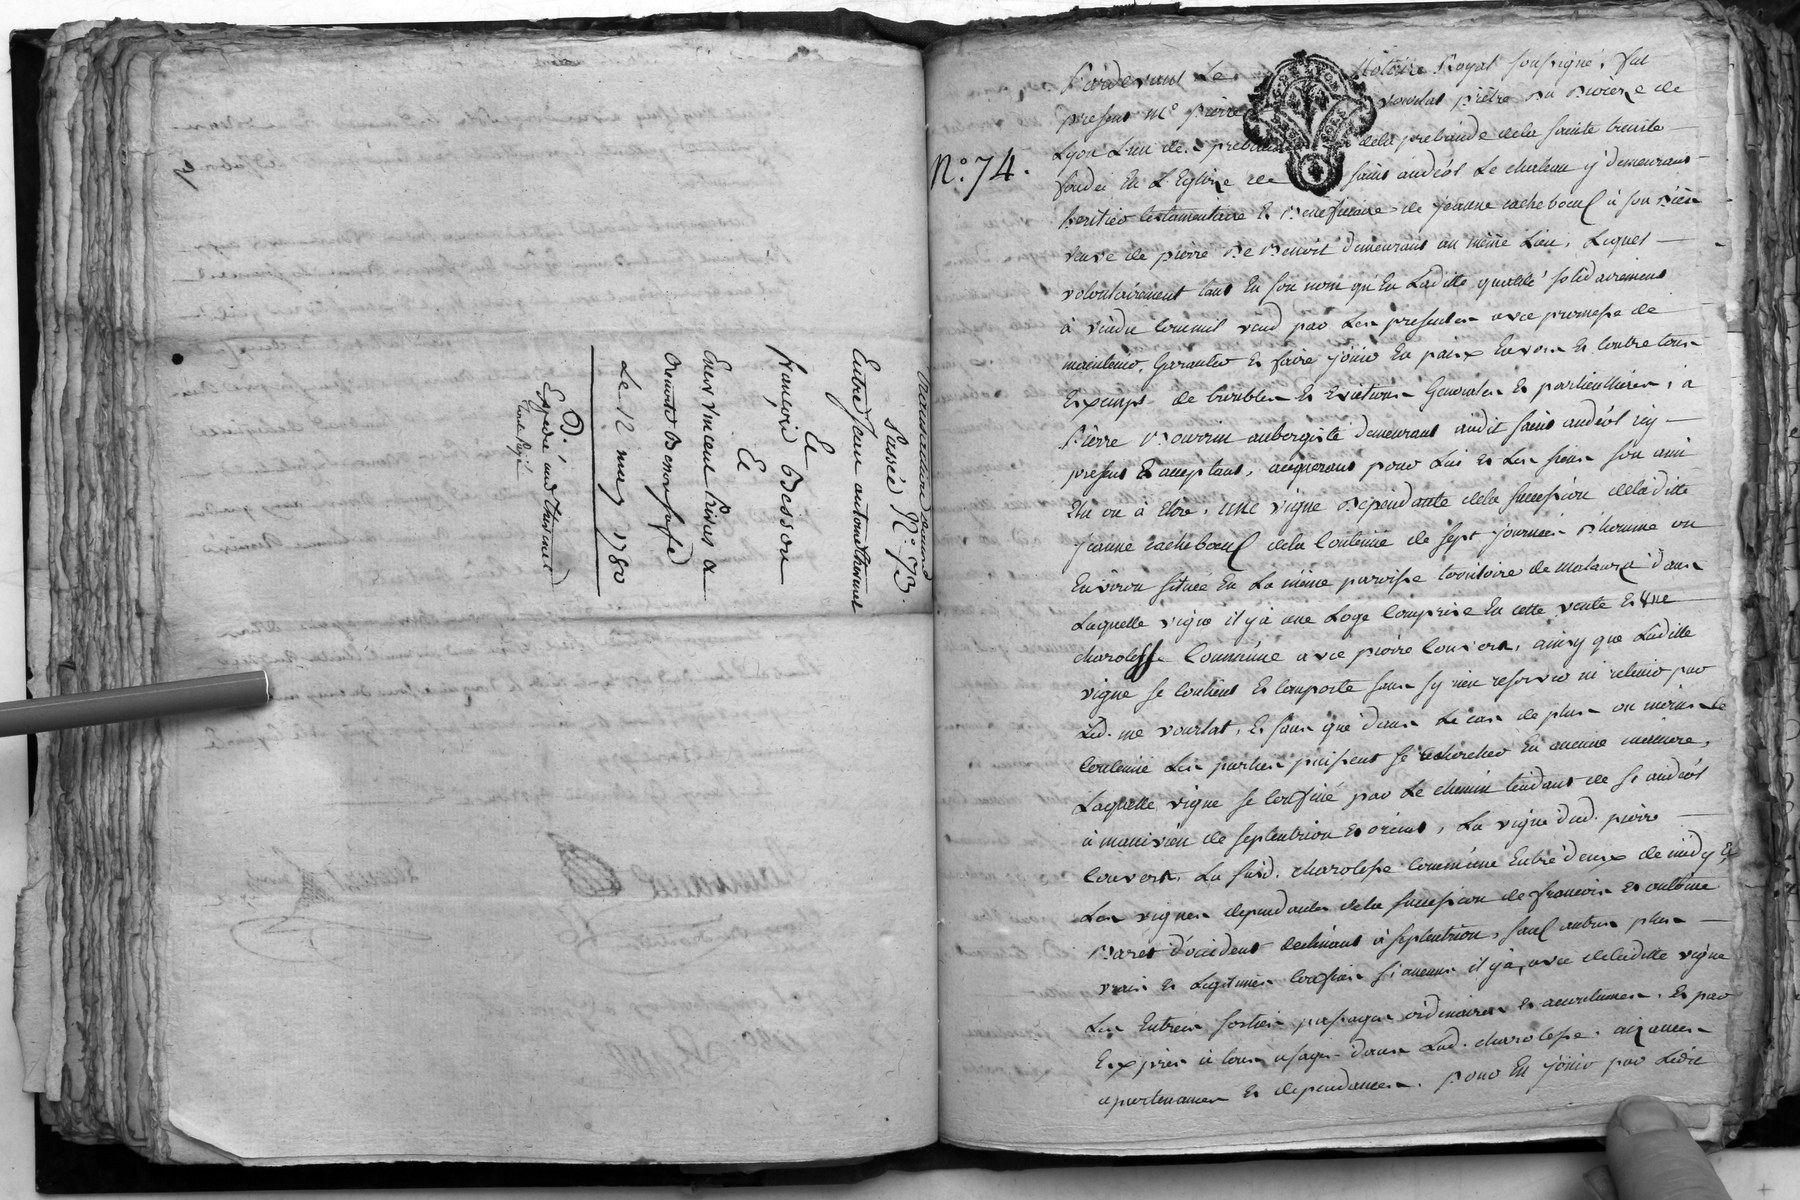 Passée N°. 73.
Entre Jean antoine thevenet
Et
françoise Besson
Et
Le 12 may 1780
N°. 74.
Pardevant Le Notaire Royal soussigné, fut
présent Me. pierre vourlat prêtre du Diocèze de
Lyon L'un des dela prebande dela sainte trinité
fondée En L'Eglize de saint andéol Le chateau y demeurant
heritier testamentaire Et Beneficiaire de jeanne cacheboeuf à son décès
veuve de pierre De Benoit demeurant au même Lieu, Lequel
volontairement tant En son nom qu'En Laditte qualité solidairement
à vendu Comme vend par Les presentes avec promesse de
maintenir, Garantir Et faire jouir En paix Envers Et Contre tous
Exempt de troubles Et Evictions Generales Et particullieres, à
Pierre Bourrin aubergiste demeurant audit saint andéol icy
présent Et acceptant, acquerant pour Lui Et Les siens son ami
Elu ou à Elire, une vigne Dépendante dela succession deladitte
jeanne cacheboeuf dela Contenue de sept journées D'homme ou
Environ située En La même paroisse territoire de dans
Laquelle vigne il y a une Loge Comprise En cette vente Et une
charolesse Commune avec pierre Convers, ainsy que Laditte
vigne se Contient Et Comporte sans s'y rien reserver ni retenir par
Led. me vourlat, Et sans que dans Le cas de plus ou moins de
Contenue Les parties puissent se rechercher En aucune maniere,
Laquelle vigne se Confine par Le chemin tendant de St andéol
à de septentrion Et orient, La vigne dud. pierre
Convers, La susd. charolesse Commune Entre deux de midy Et
Les vignes dependantes dela succession de francois Et antoine
d'occident declinant à septentrion, sauf autres plus
vrais Et Legitimes Confins si aucuns il y a, avec deladitte vigne
Les Entrées sorties passages ordinaires Et accoutumés. Et par
Exprès à tous usages dans Lad. charolesse. aizances
apartenances Et dependances. pour En jouir par Ledit